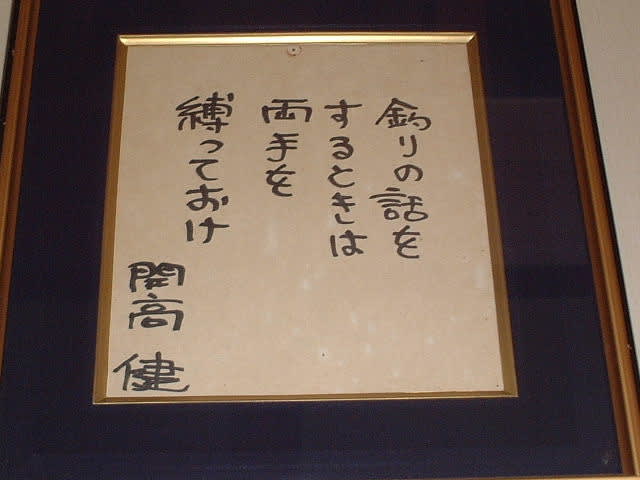 釣りの話を
するときは
両手を
縛っておけ
開高健